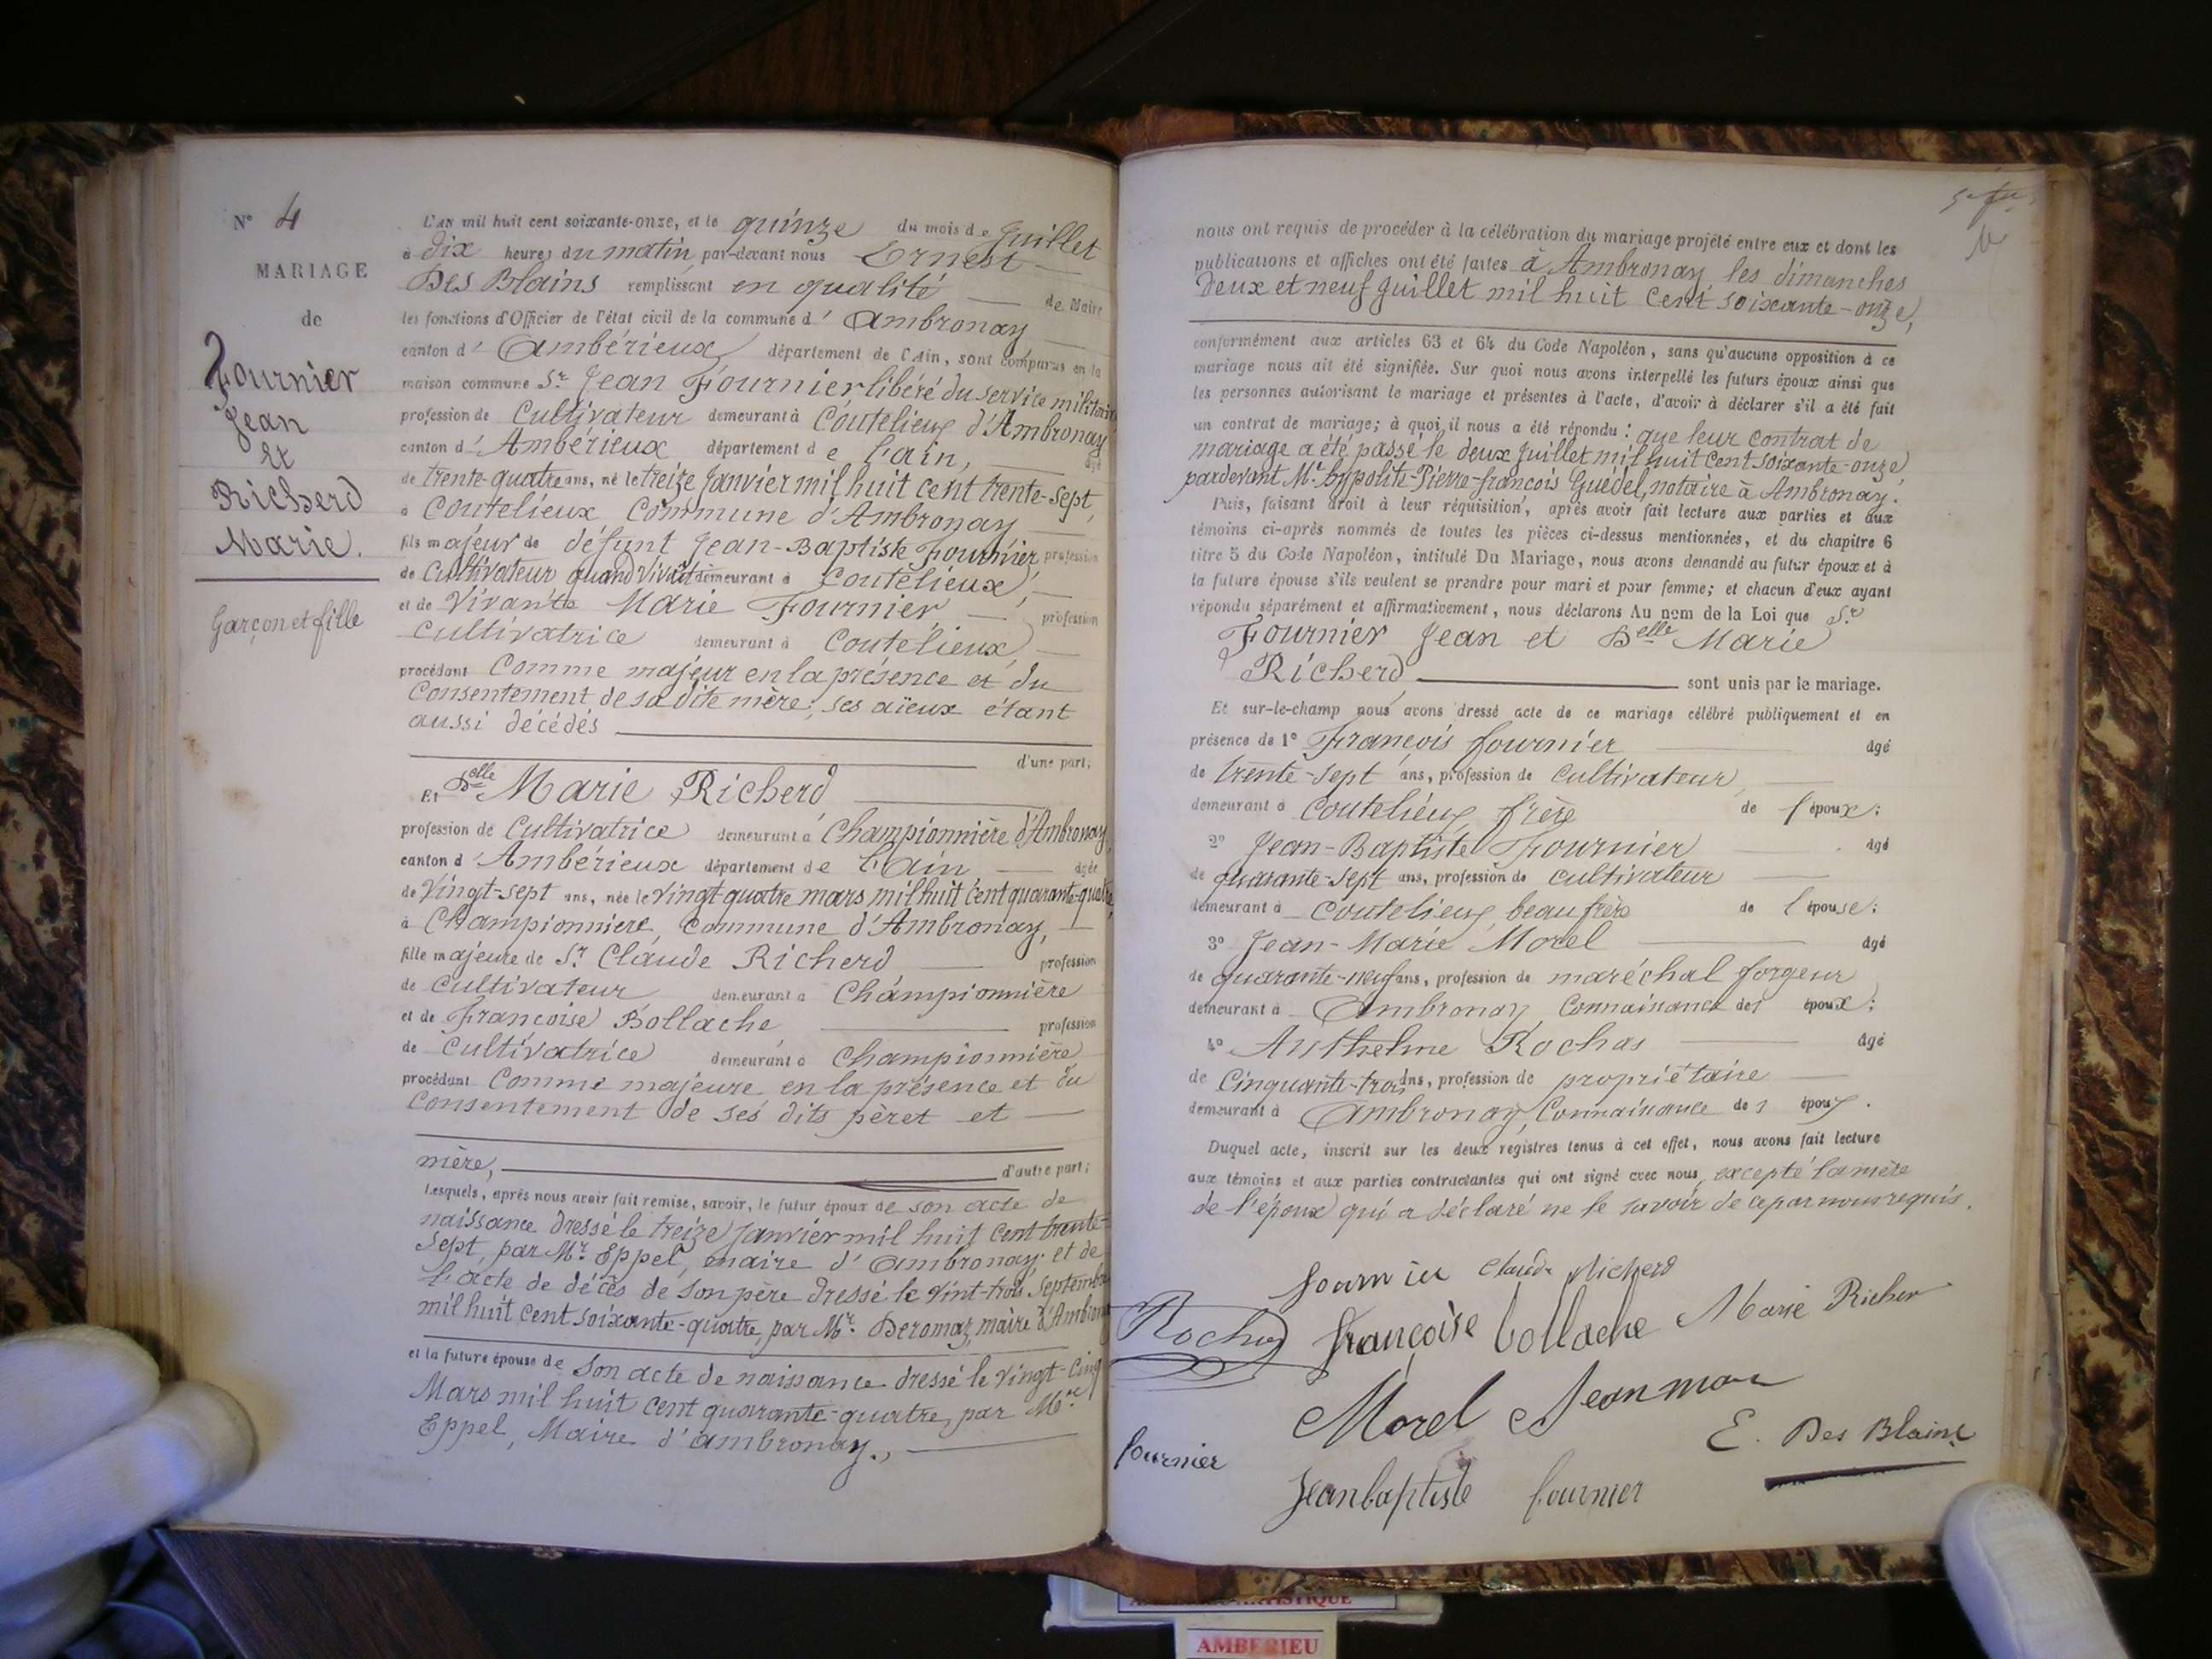 N° 4
MARIAGE
de
Fournier
Jean
et
Richerd
Marie.
Garçon et fille
L'an mil huit cent soixante-onze, et le quinze du mois de Juillet
à dix heures du matin par-devant nous Ernest
Des Blains remplissant en qualité de Maire
les fonctions d'Officier de l'état civil de la commune d'Ambronay
canton d'Ambérieux département de l'Ain, sont comparus en la
maison commune Sr Jean Fournier libéré du service militaire
profession de Cultivateur demeurant à Coutelieux d'Ambronay
canton d'Ambérieux département de l'ain, âgé
de trente-quatre ans, né le treize Janvier mil huit cent trente-sept,
à Coutelieux Commune d'Ambronay
fils majeur de défunt Jean-Baptiste Fournier, profession
de Cultivateur quand vivait demeurant à Coutelieux,
et de Vivante Marie Fournier, profession
cultivatrice demeurant à Coutelieux,
procédant Comme majeur en la présence et du
Consentement de sa dite mère, ses aïeux étant
aussi décédés
d'une part;
Et Delle Marie Richerd
profession de Cultivatrice demeurant à Championnière d'Ambronay,
canton d'Ambérieux département de l'Ain âgée
de Vingt-sept ans, née le Vingt-quatre mars mil huit cent quarante-quatre,
à Championniere, Commune d'Ambronay,
fille majeure de Sr Claude Richerd profession
de Cultivateur demeurant à Championnière
et de Françoise Bollache profession
de Cultivatrice demeurant à Championnière
procédant Comme majeure en la présence et du
Consentement de ses dits péret et
mère, d'autre part;
Lesquels, après nous avoir fait remise, savoir, le futur époux de son acte de
naissance dressé le treize Janvier mil huit cent trente-
sept, par Mr. Eppel, maire d'Ambronay; et de
l'acte de décès de son père dressé le Vint-trois Septembre
mil huit cent soixante-quatre, par Mr. Deromaz, maire d'Ambronay
et la future épouse de son acte de naissance dressé le vingt-cinq
Mars mil huit cent quarante-quatre, par Mr
Eppel, Maire d'ambronay.,
nous ont requis de procéder à la célébration du mariage projeté entre eux et dont les
publications et affiches ont été faites à Ambronay les dimanches
deux et neuf Juillet mil huit cent soixante-onze,
conformément aux articles 63 et 64 du Code Napoléon, sans qu'aucune opposition à ce
mariage nous ait été signifiée. Sur quoi nous avons interpellé les futurs époux ainsi que
les personnes autorisant le mariage et présentes à l'acte, d'avoir à déclarer s'il a été fait
un contrat de mariage; à quoi il nous a été répondu: que leur contrat de
mariage a été passé le deux Juillet mil huit cent soixante-onze,
pardevant Mr. hypolite-Pierre-françois Guédel, notaire à Ambronay.
Puis, faisant droit à leur réquisition, après avoir fait lecture aux parties et aux
témoins ci-après nommés de toutes les pièces ci-dessus mentionnées, et du chapitre 6
titre 5 du Code Napoléon, intitulé Du Mariage, nous avons demandé au futur époux et à
la future épouse s'ils veulent se prendre pour mari et pour femme; et chacun d'eux ayant
répondu séparément et affirmativement, nous déclarons Au nom de la Loi que Sr
Fournier Jean et Delle Marie
Richerd sont unis par le mariage.
Et sur-le-champ nous avons dressé acte de ce mariage célébré publiquement et en
présence de 1° François fournier âgé
de trente-sept ans, profession de cultivateur,
demeurant à Coutelieux frère de l'époux;
2° Jean-Baptiste Fournier âgé
de quarante-sept ans, profession de cultivateur
demeurant à Coutelieux beaufrère de l'épouse;
3° Jean-Marie Morel âgé
de quarante-neuf ans, profession de maréchal forgeur
demeurant à Ambronay Connaissance des époux;
4° Anthelme Rochas âgé
de Cinquante-trois ans, profession de propriétaire
demeurant à Ambronay, Connaissance des époux.
Duquel acte, inscrit sur les deux registres tenus à cet effet, nous avons fait lecture
aux témoins et aux parties contractantes qui ont signé avec nous, excepté la mère
de l'époux qui a déclaré ne le savoir de ce par nous requis.
fournier Claude Richerd
Rochas françoise bollache Marie Richer
Morel Jeanmar
fournier E. Des Blains
Jeanbaptiste fournier
AMBERIEU